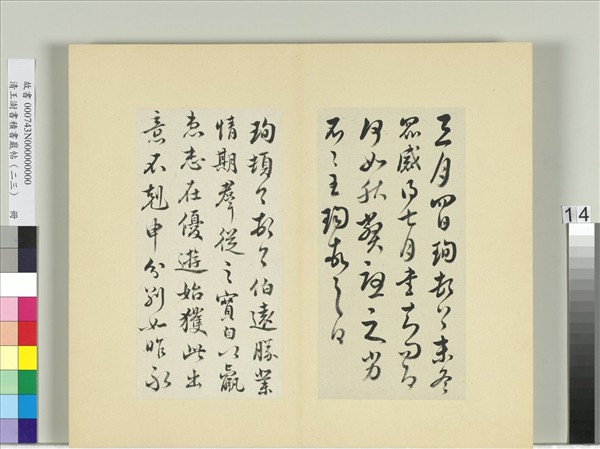 三月四日珣頓首末冬
眾感得七月書知問
何如秋
不一王珣頓首
珣頓首頓首伯遠勝業
情期群從之寶自以羸
患志在優遊始獲此出
意不剋申分別如昨永
故書 000743N000000000
清王澍書積書巖帖(二三) 冊
14